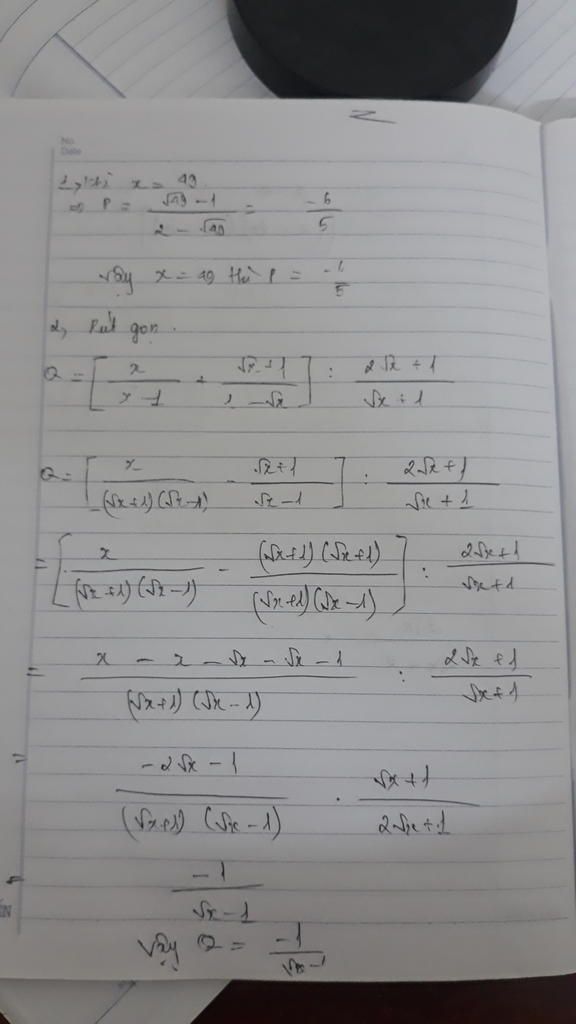 No.
Date
1, Khi x = 49
⇒ P = (√49 - 1)/(2 - √49) = -6/5
Vậy x = 49 thì P = -6/5
2, Rút gọn.
Q = [x/(x - 1) + (√x + 1)/(1 - √x)] : (2√x + 1)/(√x + 1)
Q = [x/((√x+1)(√x-1)) - (√x+1)/(√x-1)] : (2√x+1)/(√x+1)
= [x/((√x+1)(√x-1)) - ((√x+1)(√x+1))/((√x+1)(√x-1))] : (2√x+1)/(√x+1)
= (x - x - √x - √x - 1)/((√x+1)(√x-1)) : (2√x+1)/(√x+1)
= (-2√x - 1)/((√x+1)(√x-1)) . (√x+1)/(2√x+1)
= -1/(√x-1)
Vậy Q = -1/(√x-1)